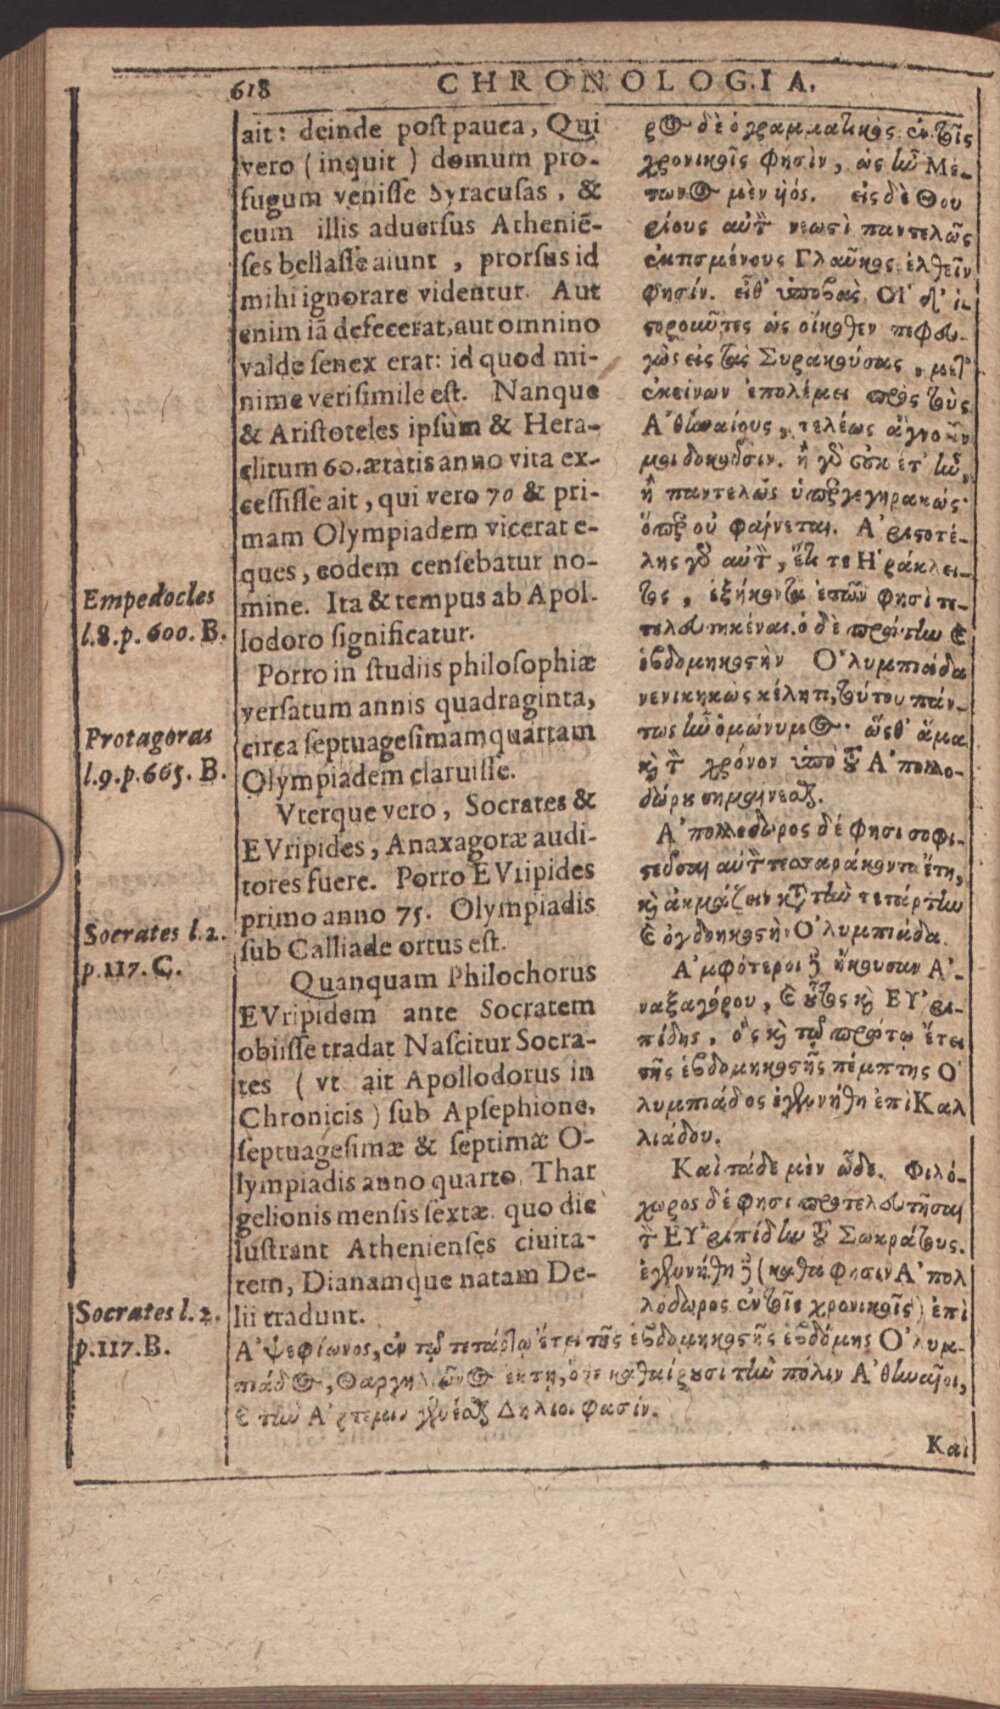 618 CHRONOLOGIA.
ait: deinde post pauca, Qui
vero (inquit) domum pro-
fugum venisse Syracusas, &
cum illis aduersus Atheniẽ-
ses bellasse aiunt, prorsus id
mihi ignorare videntur. Aut
enim iã defecerat, aut omnino
valde senex erat: id quod mi-
nime verisimile est. Nanque
& Aristoteles ipsùm & Hera-
clitum 60. ætatis anno vita ex-
cessisse ait, qui vero 70 & pri-
mam Olympiadem vicerat e-
ques, eodem censebatur no-
mine. Ita & tempus ab Apol-
lodoro significatur.
Porro in studiis philosophiæ
versatum annis quadraginta,
circa septuagesimam quartam
Olympiadem claruisse.
Vterque vero, Socrates &
EVripides, Anaxagoræ audi-
tores fuere. Porro EVripides
primo anno 75. Olympiadis
sub Calliade ortus est.
Quanquam Philochorus
EVripidem ante Socratem
obiisse tradat Nascitur Socra-
tes (vt ait Apollodorus in
Chronicis) sub Apsephione,
septuagesimæ & septimæ O-
lympiadis anno quarto, Thar
gelionis mensis sextæ quo die
lustrant Athenienses ciuita-
tem, Dianamque natam De-
lii tradunt.
Empedocles
l.8.p.600.B.
Protagoras
l.9.p.665.B.
Socrates l.2.
p.117.C.
Socrates l.2.
p.117.B.
ρος δὲ ὁ γραμματικὸς ἐν τοῖς
χρονικοῖς φησὶν, ὡς ἦν Μέ-
τωνος μὲν υἱός. εἰς δὲ Θου
ρίους αὐτὸν νεωστὶ παντελῶς
ἐκτισμένους Γλαῦκος ἐλθεῖν
φησίν. εἶθ' ὑποβὰς, Οἱ δ' ἱ-
στοροῦντες ὡς οἴκοθεν πεφευ-
γὼς εἰς τὰς Συρακούσας, μετ'
ἐκείνων ἐπολέμει πρὸς τοὺς
Ἀθηναίους, τελέως ἀγνοεῖν
μοι δοκοῦσιν. ἢ γὸ οὐκ ἔτ' ἦν,
ἢ παντελῶς ὑπεργεγηρακώς·
ὅπερ οὐ φαίνεται. Ἀριστοτέ-
λης γὸ αὐτὸν, ἔτι τε Ἡράκλει-
τος, ἑξήκοντα ἐτῶν φησὶ τε-
τελευτηκέναι. ὁ δὲ πρώτην καὶ
ἑβδομηκοστὴν Ὀλυμπιάδα
νενικηκὼς κέλητι, τούτου πάν-
τως ἦν ὁμώνυμος· ὥσθ' ἅμα
καὶ τὸν χρόνον ὑπὸ τοῦ Ἀπολλο-
δώρου σημαίνεσθαι.
Ἀπολλόδωρος δέ φησι σοφι-
στεῦσαι αὐτὸν τεσσαράκοντα ἔτη,
καὶ ἀκμάζειν κατὰ τὴν τετάρτην
καὶ ὀγδοηκοστὴν Ὀλυμπιάδα.
Ἀμφότεροι δὲ ἤκουσαν Ἀ-
ναξαγόρου, καὶ οὗτος καὶ ΕΥρι-
πίδης, ὃς καὶ τῷ πρώτῳ ἔτει
τῆς ἑβδομηκοστῆς πέμπτης Ὀ
λυμπιάδος ἐγεννήθη ἐπὶ Καλ
λιάδου.
Καὶ τάδε μὲν ὧδε. Φιλό-
χορος δέ φησι προτελευτῆσαι
τὸν ΕΥριπίδην τοῦ Σωκράτους.
ἐγεννήθη δὲ (καθά φησιν Ἀπολ
λόδωρος ἐν τοῖς χρονικοῖς) ἐπὶ
Ἀψεφίωνος, ἐν τῷ τετάρτῳ ἔτει τῆς ἑβδομηκοστῆς ἑβδόμης Ὀλυμ-
πιάδος, Θαργηλιῶνος ἕκτῃ, ὅτε καθαίρουσι τὴν πόλιν Ἀθηναῖοι,
καὶ τὴν Ἄρτεμιν γενέσθαι Δήλιοι φασίν.
Καὶ